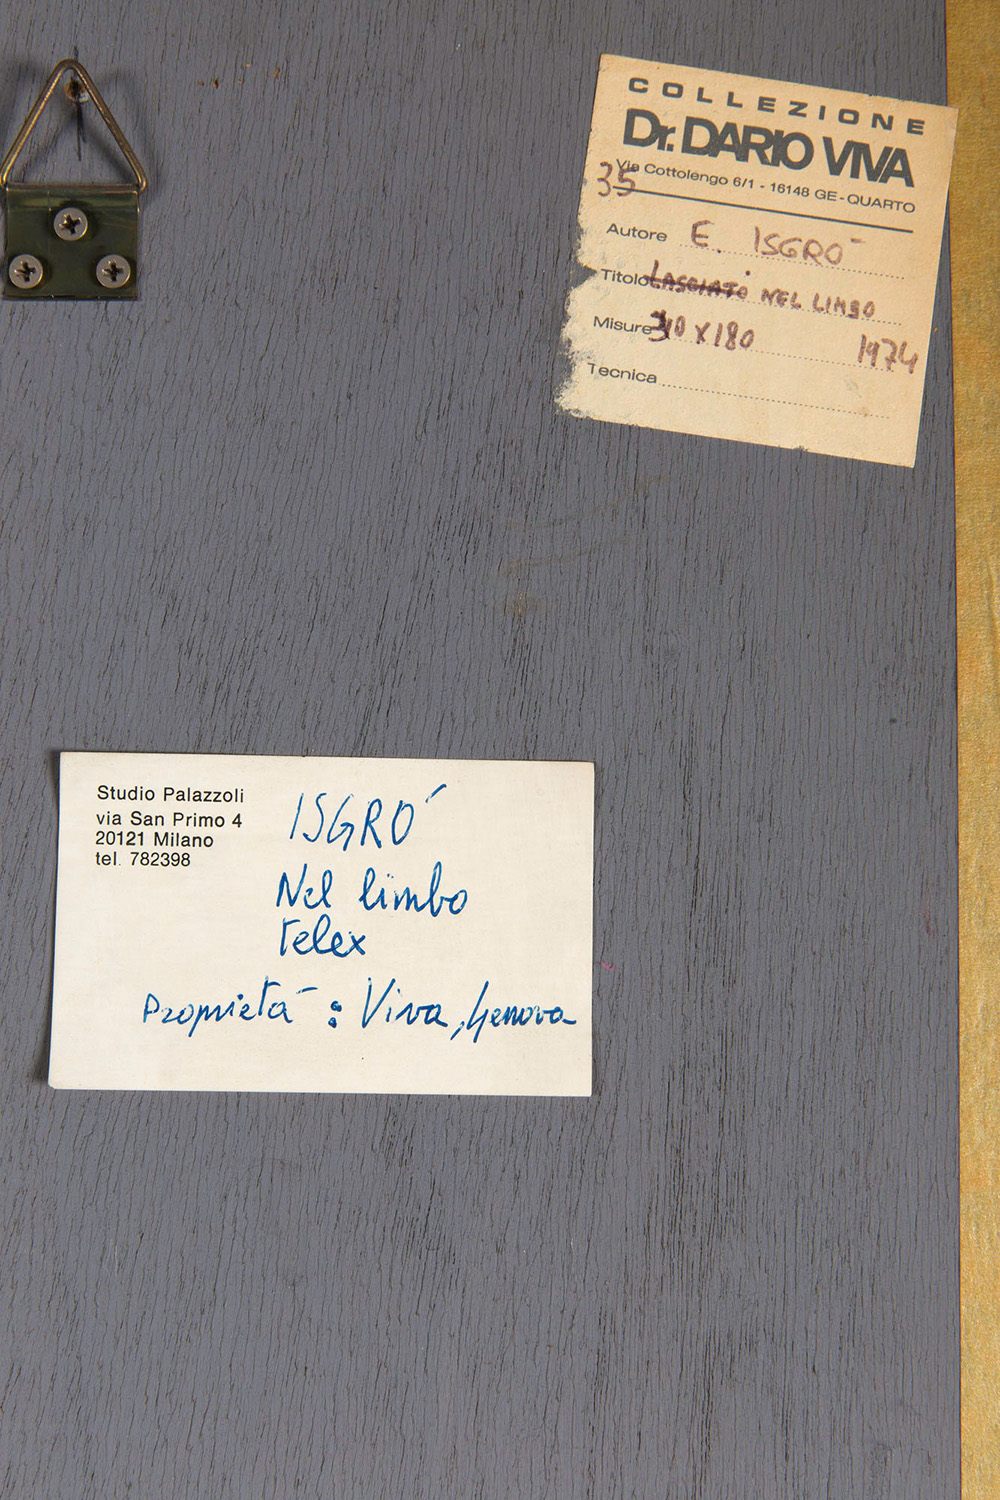 COLLEZIONE
Dr. DARIO VIVA
Via Cottolengo 6/1 - 16148 GE - QUARTO
35
Autore E. ISGRÒ
Titolo LASCIATO NEL LIMBO
Misure 310 X 180 1974
Tecnica
Studio Palazzoli
via San Primo 4
20121 Milano
tel. 782398
ISGRÓ
Nel limbo
telex
Proprietà : Viva, Genova